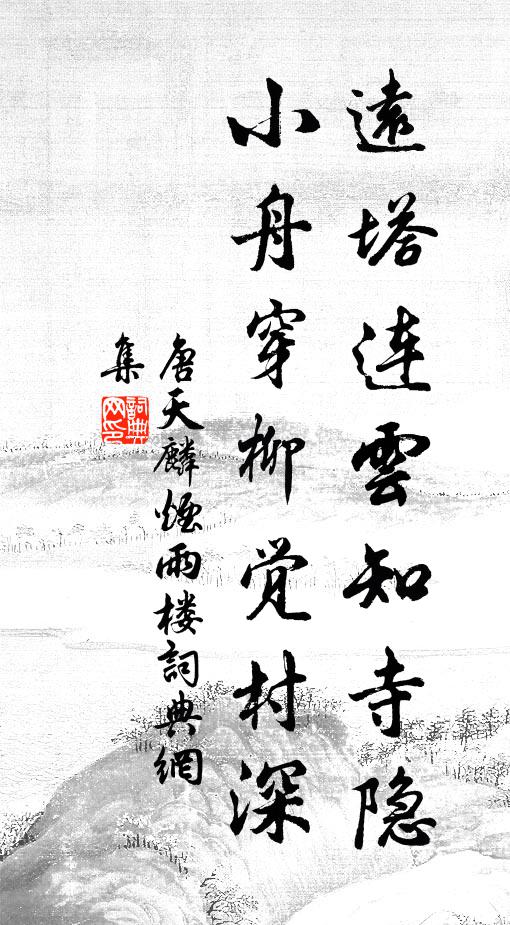 遠塔连雲知寺隐
小舟穿柳觉村深
唐天麟煙雨楼詞典網
集
詞典网印